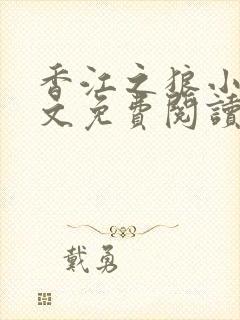 香江之狼小
文免費閱讀
戴勇